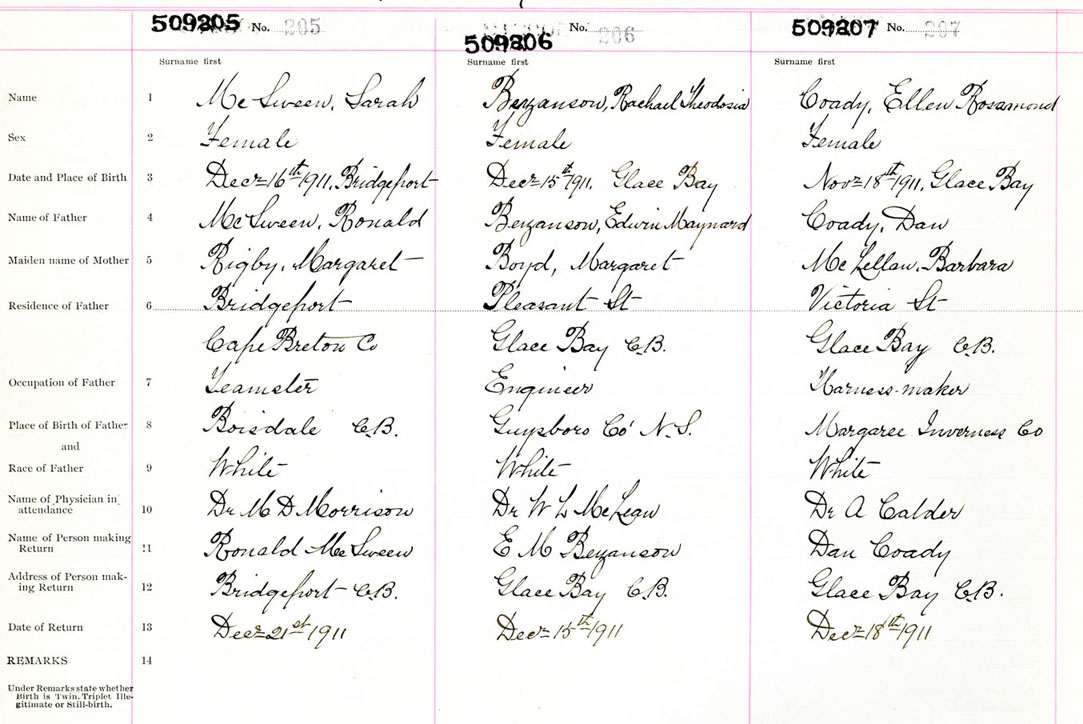 509205 No. 205 509206 No. 206 509207 No. 207
Surname first Surname first Surname first
Name 1 Mc Sween, Sarah Bezanson, Rachael Theodosia Coady, Ellen Rosamond
Sex 2 Female Female Female
Date and Place of Birth 3 Decr 16th 1911, Bridgeport Decr 15th 1911, Glace Bay Novr 18th 1911, Glace Bay
Name of Father 4 Mc Sween, Ronald Bezanson, Edwin Maynard Coady, Dan
Maiden name of Mother 5 Rigby, Margaret Boyd, Margaret Mc Lellan, Barbara
Residence of Father 6 Bridgeport Pleasant St Victoria St
Cape Breton Co Glace Bay C.B. Glace Bay C.B.
Occupation of Father 7 Teamster Engineer Harness-maker
Place of Birth of Father 8 Boisdale C.B. Guysboro Co' N.S. Margaree Inverness Co
and
Race of Father 9 White White White
Name of Physician in attendance 10 Dr M D Morrison Dr W L McLean Dr A Calder
Name of Person making Return 11 Ronald Mc Sween E M Bezanson Dan Coady
Address of Person mak-ing Return 12 Bridgeport C.B. Glace Bay C.B. Glace Bay C.B.
Date of Return 13 Decr 21st 1911 Decr 15th 1911 Decr 18th 1911
REMARKS 14
Under Remarks state whether
Birth is Twin, Triplet, Ille-
gitimate or Still-birth.